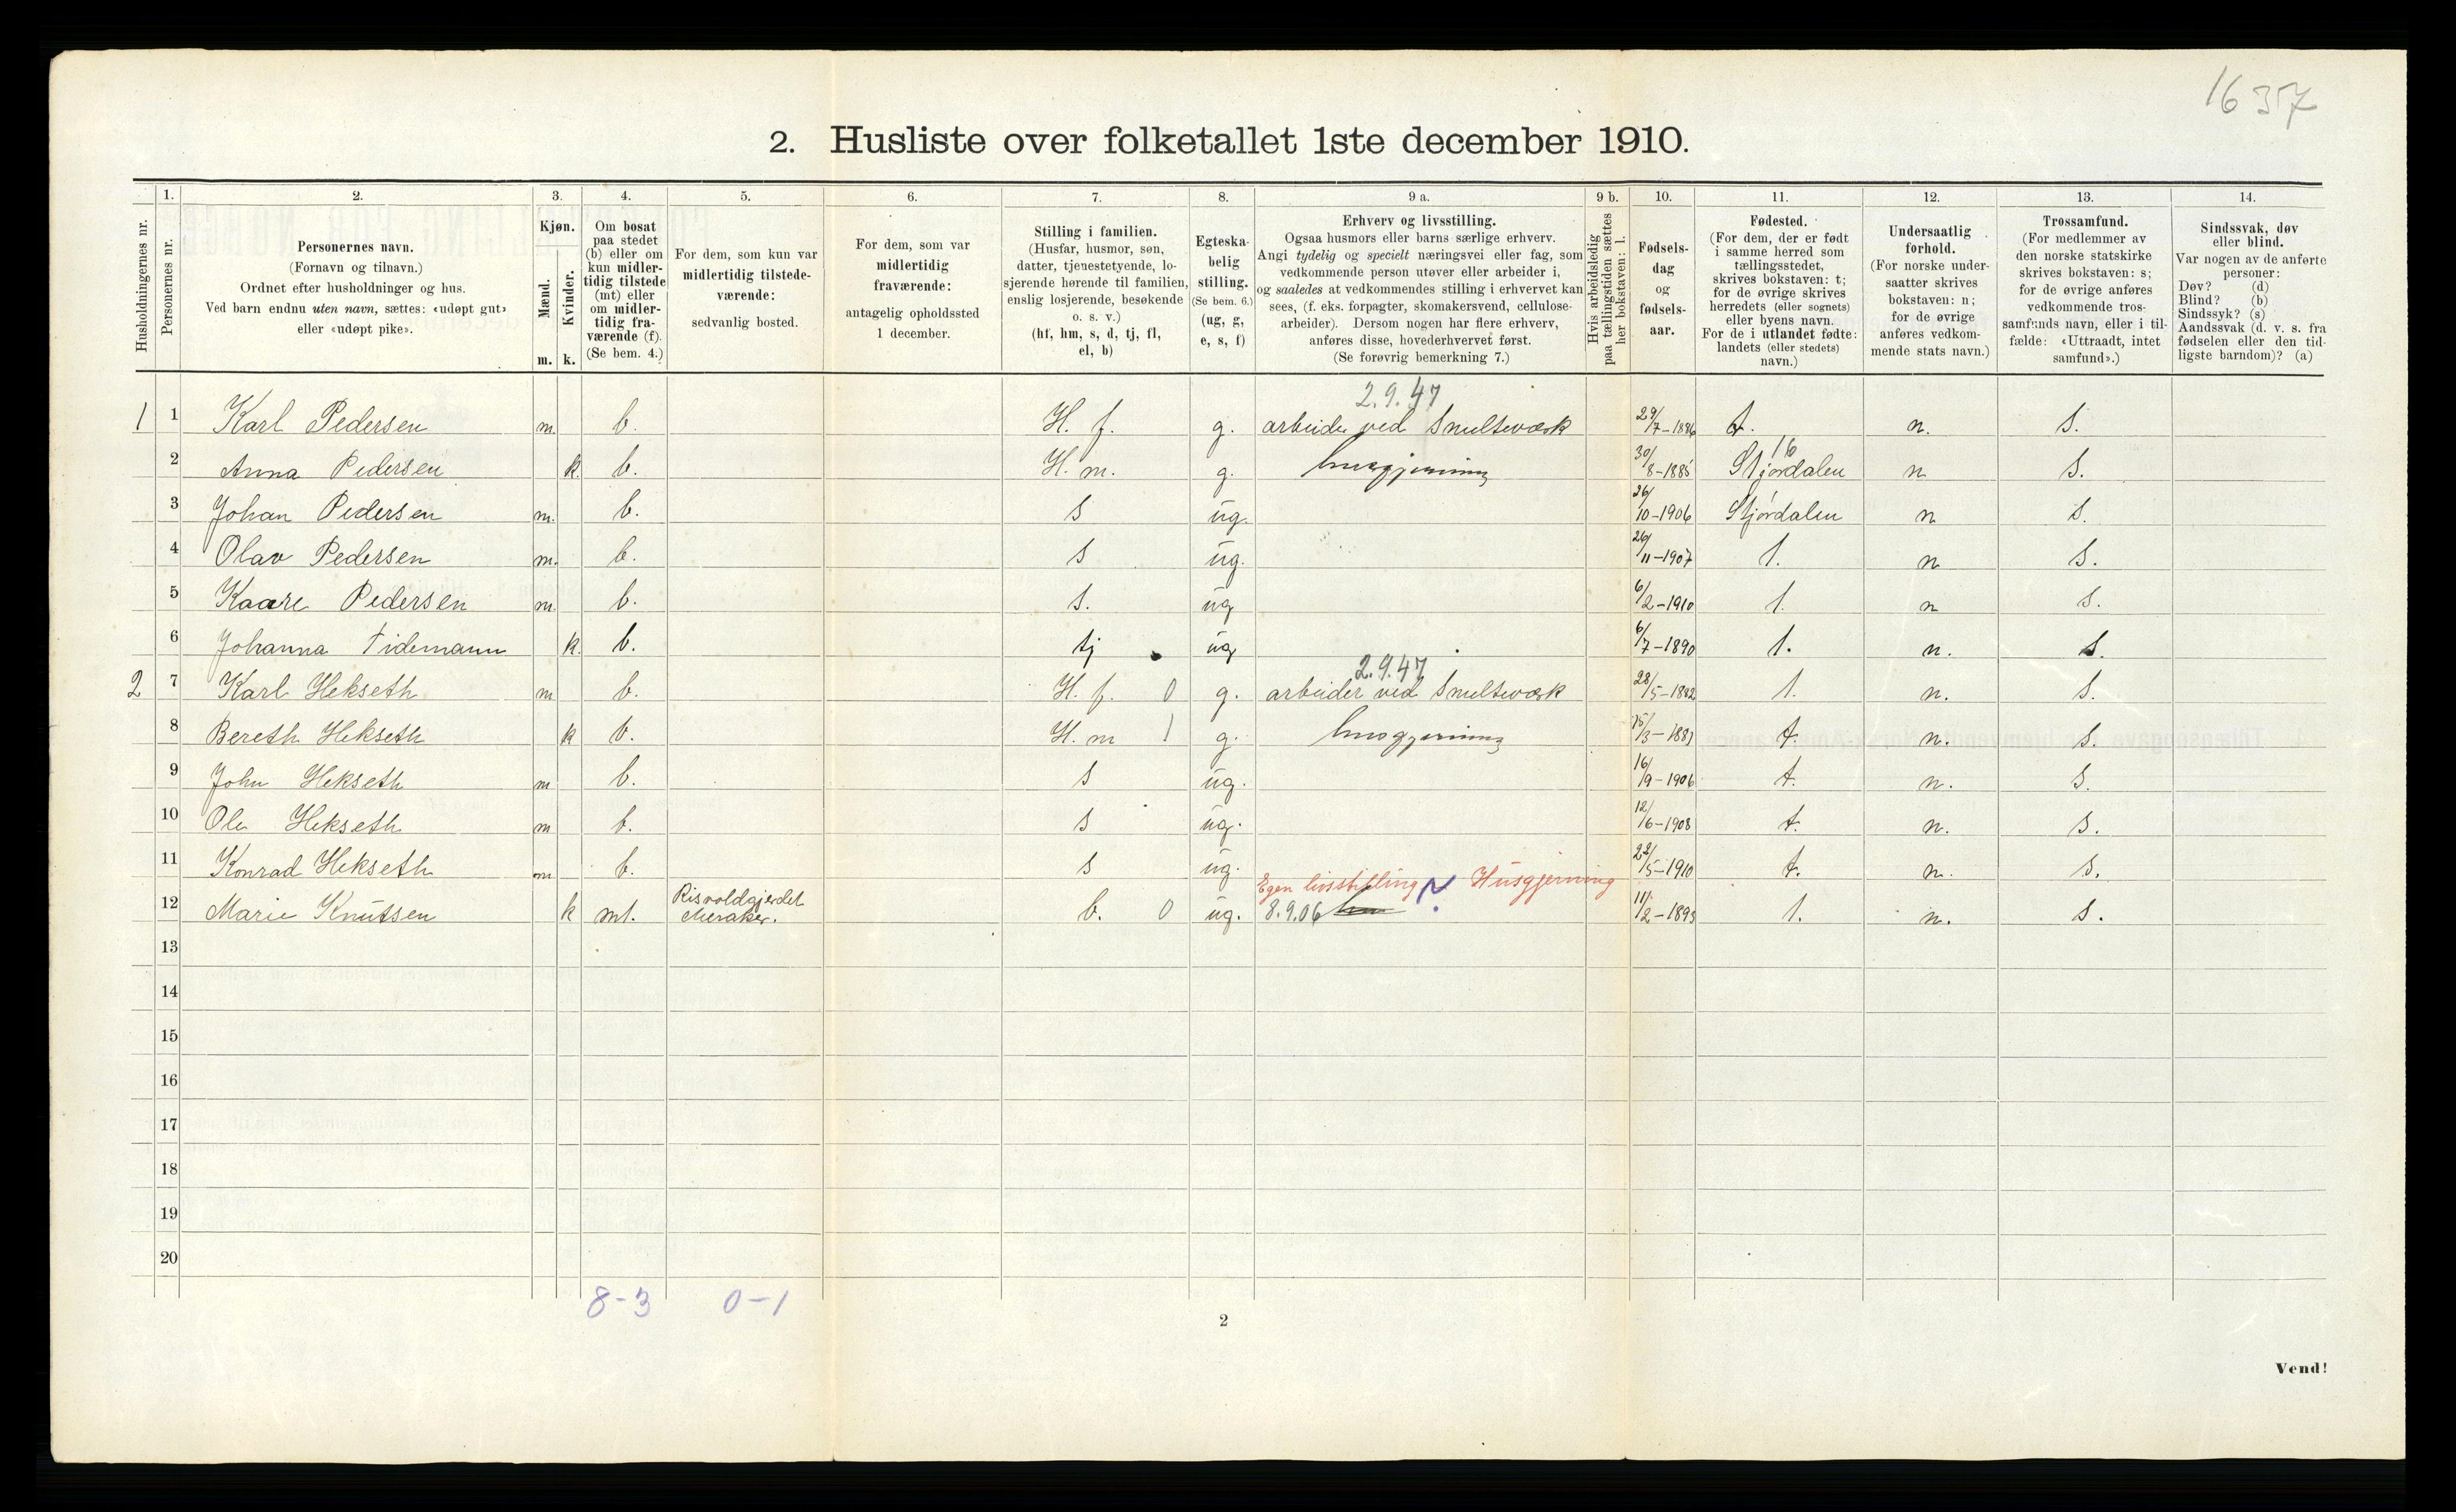 1637
2. Husliste over folketallet 1ste december 1910.
Husholdningernes nr.
1.
Personernes nr.
2.
Personernes navn.
(Fornavn og tilnavn.)
Ordnet efter husholdninger og hus.
Ved barn endnu uten navn, sættes: «udøpt gut»
eller «udøpt pike».
3.
Kjøn.
Mænd.
Kvinder.
m. k.
4.
Om bosat
paa stedet
(b) eller om
kun midler-
tidig tilstede
(mt) eller
om midler-
tidig fra-
værende (f).
(Se bem. 4.)
5.
For dem, som kun var
midlertidig tilstede-
værende:
sedvanlig bosted.
6.
For dem, som var
midlertidig
fraværende:
antagelig opholdssted
1 december.
7.
Stilling i familien.
(Husfar, husmor, søn,
datter, tjenestetyende, lo-
sjerende hørende til familien,
enslig losjerende, besøkende
o. s. v.)
(hf, hm, s, d, tj, fl,
el, b)
8.
Egteska-
belig
stilling.
(Se bem. 6.)
(ug, g,
e, s, f)
9 a.
Erhverv og livsstilling.
Ogsaa husmors eller barns særlige erhverv.
Angi tydelig og specielt næringsvei eller fag, som
vedkommende person utøver eller arbeider i,
og saaledes at vedkommendes stilling i erhvervet kan
sees, (f. eks. forpagter, skomakersvend, cellulose-
arbeider). Dersom nogen har flere erhverv,
anføres disse, hovederhvervet først.
(Se forøvrig bemerkning 7.)
9 b.
Hvis arbeidsledig
paa tællingstiden sættes
her bokstaven: l.
10.
Fødsels-
dag
og
fødsels-
aar.
11.
Fødested.
(For dem, der er født
i samme herred som
tællingsstedet,
skrives bokstaven: t;
for de øvrige skrives
herredets (eller sognets)
eller byens navn.
For de i utlandet fødte:
landets (eller stedets)
navn.)
12.
Undersaatlig
forhold.
(For norske under-
saatter skrives
bokstaven: n;
for de øvrige
anføres vedkom-
mende stats navn.)
13.
Trossamfund.
(For medlemmer av
den norske statskirke
skrives bokstaven: s;
for de øvrige anføres
vedkommende tros-
samfunds navn, eller i til-
fælde: «Uttraadt, intet
samfund».)
14.
Sindssvak, døv
eller blind.
Var nogen av de anførte
personer:
Døv? (d)
Blind? (b)
Sindssyk? (s)
Aandssvak (d. v. s. fra
fødselen eller den tid-
ligste barndom)? (a)
2.9.47
1 1 Karl Pedersen m. b. H. f. g. arbeider ved Smelteværk 29/7-1886 t. n. S.
16
2 Anna Pedersen k. b. H. m. g. husgjerning 30/8-1885 Stjørdalen n S.
3 Johan Pedersen m. b. s ug. 26/10-1906 Stjørdalen n S.
4 Olav Pedersen m. b. s ug. 26/11-1907 t. n S.
5 Kaare Pedersen m. b. s. ug 6/2-1910 t. n S.
6 Johanna Tidemann k. b. tj ug 6/7-1890 t. n. S.
2.9.47
2 7 Karl Hekseth m b. H. f. 0 g. arbeider ved Smelteværk 28/5-1882 t. n. S.
8 Bereth Hekseth k b. H. m 1 g. husgjerning 15/3-1883 t. n. S.
9 John Hekseth m b. s ug. 16/9-1906 t. n. S.
10 Ole Hekseth m b. s ug. 12/6-1908 t. n. S.
11 Konrad Hekseth m b. s ug. 22/5-1910 t. n. S.
Egen livsstilling ? Husgjerning
12 Marie Knutsen k mt. Risvoldgjerdet Meraker. b. 0 ug. 8.9.06 11/2-1893 t. n. S.
13
14
15
16
17
18
19
20
8-3 0-1
2
Vend!